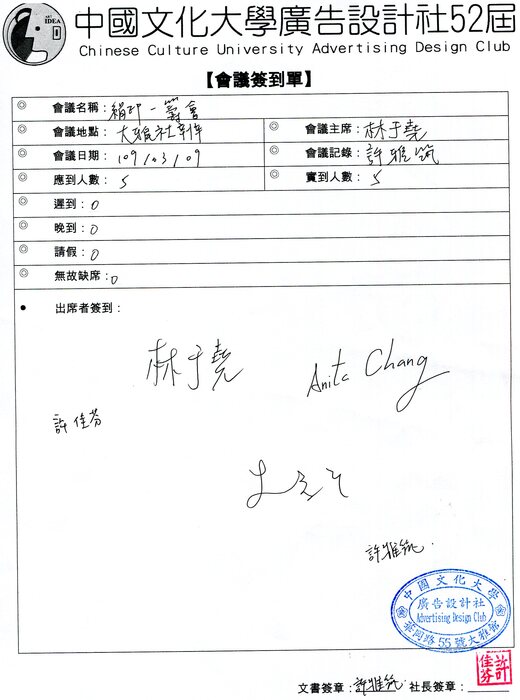 ART IDEA
中國文化大學廣告設計社52屆
Chinese Culture University Advertising Design Club
【會議簽到單】
◎ 會議名稱：絹印一籌會
◎ 會議地點：大雅社辦 ◎ 會議主席：林于堯
◎ 會議日期：109/03/09 ◎ 會議記錄：許雅筑
◎ 應到人數：5 ◎ 實到人數：5
◎ 遲到：0
◎ 晚到：0
◎ 請假：0
◎ 無故缺席：0
• 出席者簽到：
林于堯 Anita Chang
許佳芬
許雅筑
中國文化大學
廣告設計社
Advertising Design Club
華岡路55號大雅館
許佳芬
文書簽章：許雅筑 社長簽章：